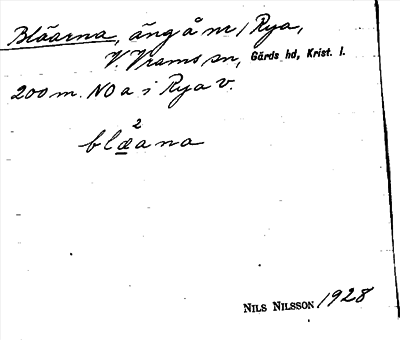 Blåarna, äng å m/ Rya,
V. Vrams sn, Gärds hd, Krist. l.
200 m. NO a i Rya v.
2
blæana
NILS NILSSON 1928